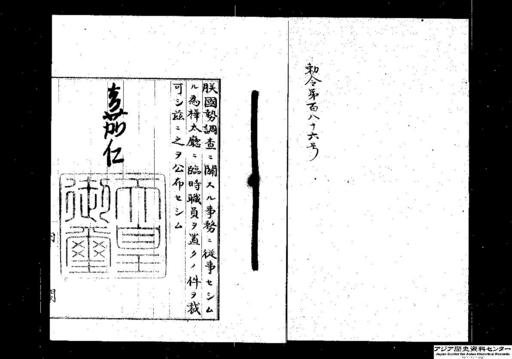 勅令第百八十六号
朕國勢調査ニ關スル事務ニ従事セシム
ル為樺太廳ニ臨時職員ヲ置クノ件ヲ裁
可シ茲ニ之ヲ公布セシム
嘉仁
天皇
御璽
内閣
アジア歴史資料センター
Japan Center for Asian Historical Records